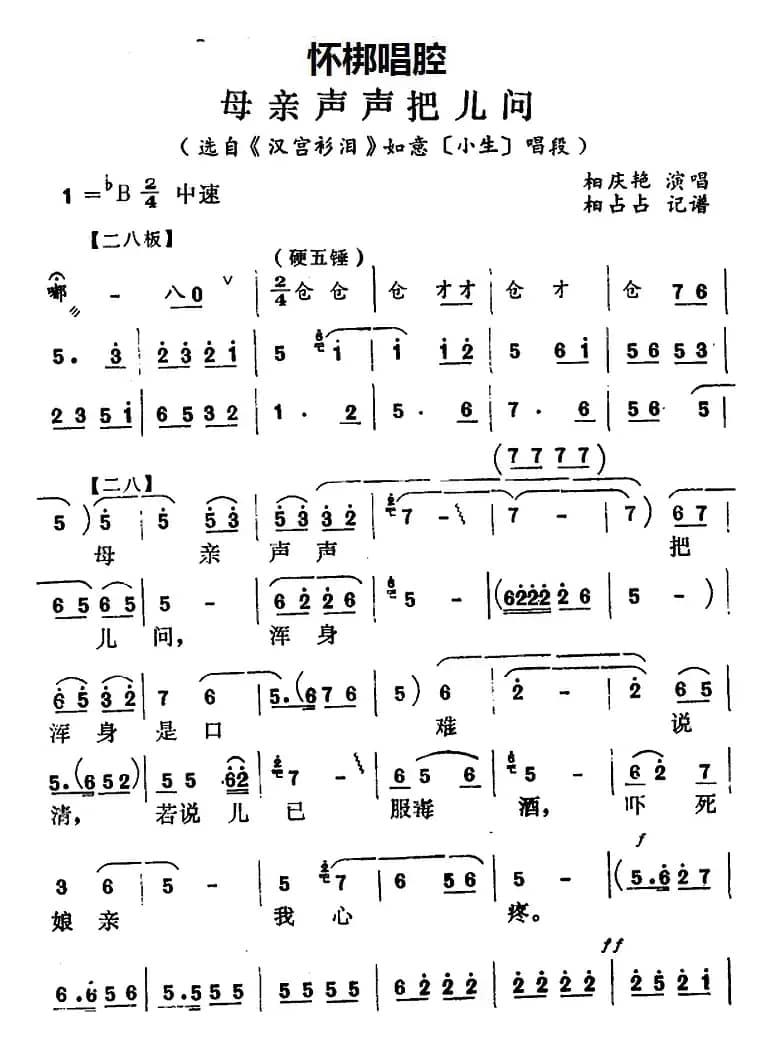 怀梆唱腔
母亲声声把儿问
(选自《汉宫衫泪》如意〔小生〕唱段)
1=♭B 2/4 中速
相庆艳 演唱
相占占 记谱
【二八板】
(硬五锤)
嘟 - 八0 ∨ | 2/4 仓 仓 | 仓 才才 | 仓 才 | 仓 76 |
5. 3 | 2321 | 5 1 | 1 12 | 5 61 | 5653 |
2351 | 6532 | 1. 2 | 5. 6 | 7. 6 | 56 5 |
(7777)
【二八】
5) 5 | 5 53 | 5332 | 7 - | 7 - | 7) 67 |
母 亲 声声 把
65 65 | 5 - | 6226 | 5 - | (622226 | 5 -) |
儿问, 浑身
6532 | 7 6 | 5.(676 | 5) 6 | 2 - | 2 65 |
浑身是口 难 说
5.(652) | 55 62 | 7 - | 65 6 | 5 - | 62 7 |
清, 若说儿已 服毒 酒, 吓死
f
3 6 | 5 - | 5 7 | 6 56 | 5 - | (5.627 |
娘亲 我心 疼。
ff
6.656 | 5.555 | 5555 | 6222 | 2222 | 2521 |